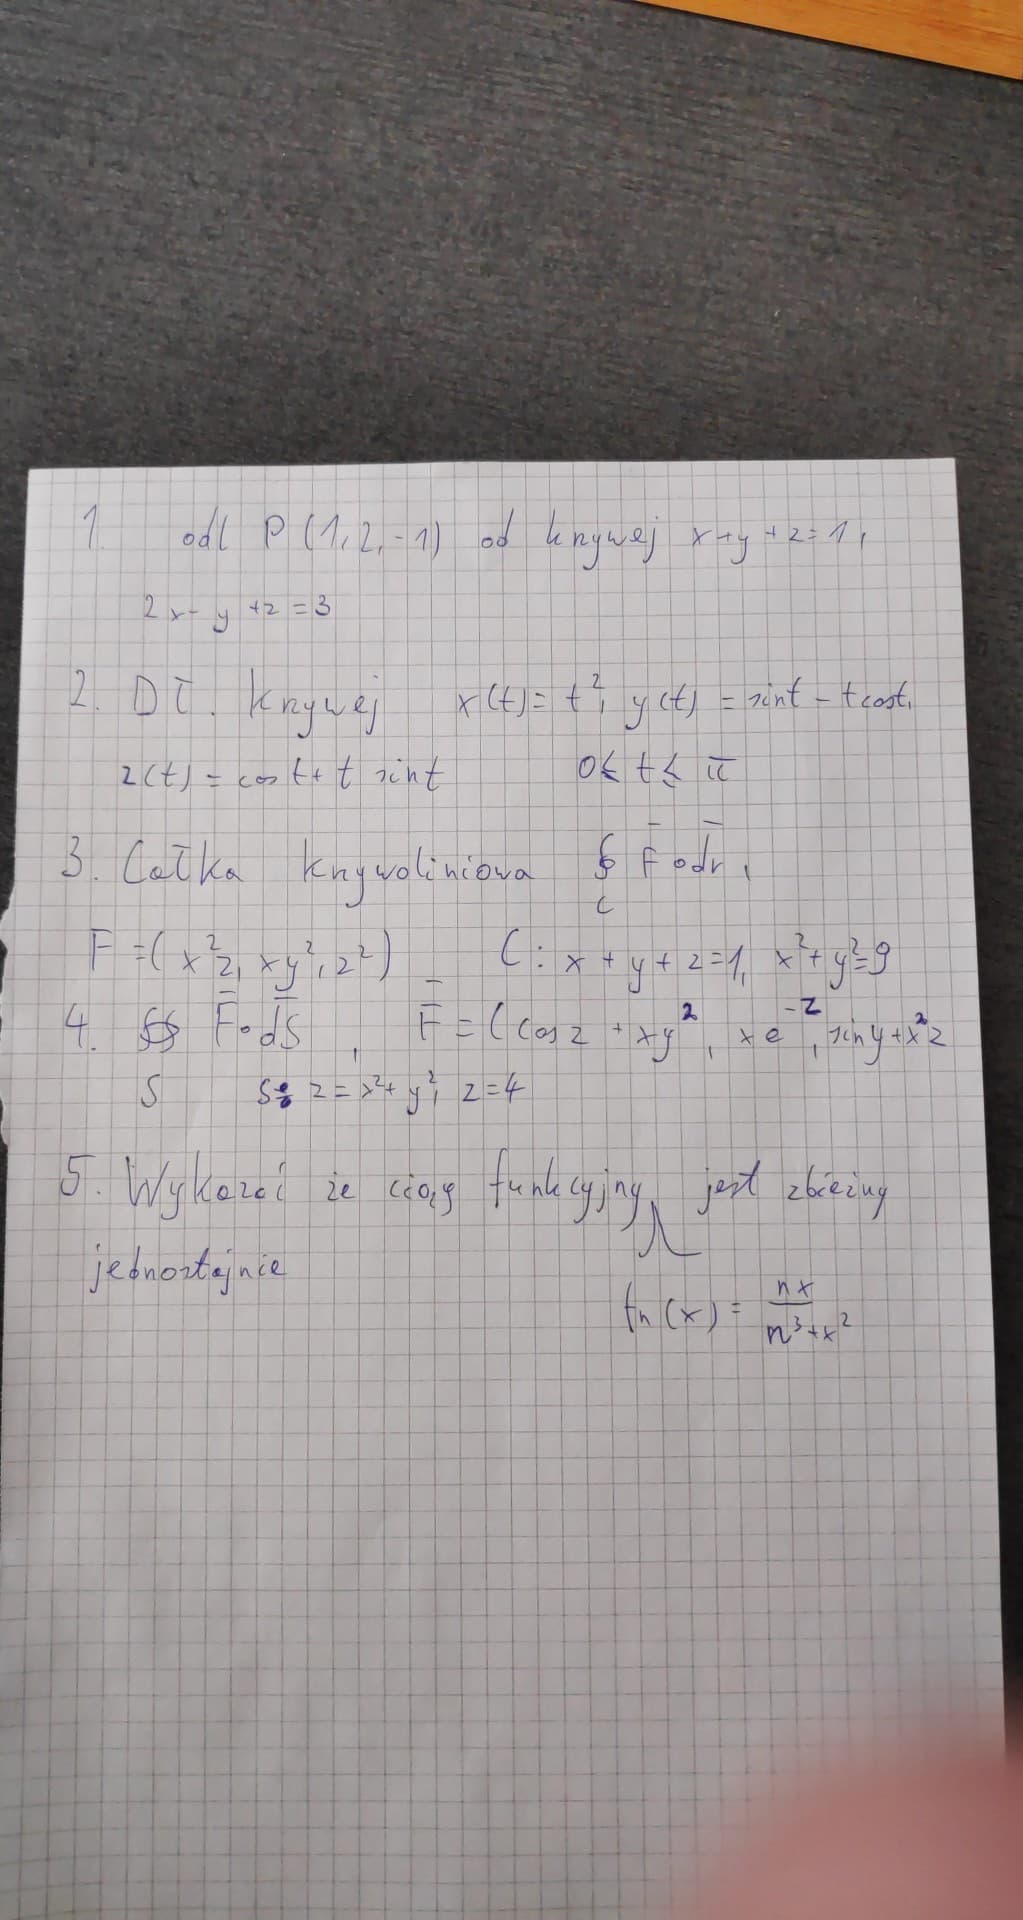 1. odl P(1,2,-1) od krzywej x+y+z=1,
2x-y+z=3
2. Dł. krzywej x(t)=t², y(t)=sint-tcost,
z(t)=cost+t sint 0≤t≤π
3. Całka krzywoliniowa ∮ F̄∘dr̄,
C
F=(x²z, xy², z²) C: x+y+z=1, x²+y²=9
4. ∯ F̄∘dS̄, F̄=(cosz+xy², xe⁻ᶻ, siny+x²z
S S: z=x²+y², z=4
5. Wykazać że ciąg funkcyjny jest zbieżny
jednostajnie
fn(x)=nx/(n³+x²)